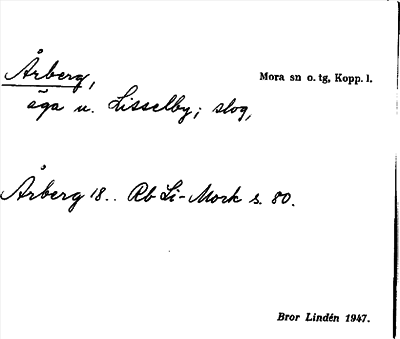 Årberg,
Mora sn o. tg, Kopp. l.
äga u. Lisselby; slog,
Årberg 18.. Rb Li-Mork s. 80.
Bror Lindén 1947.